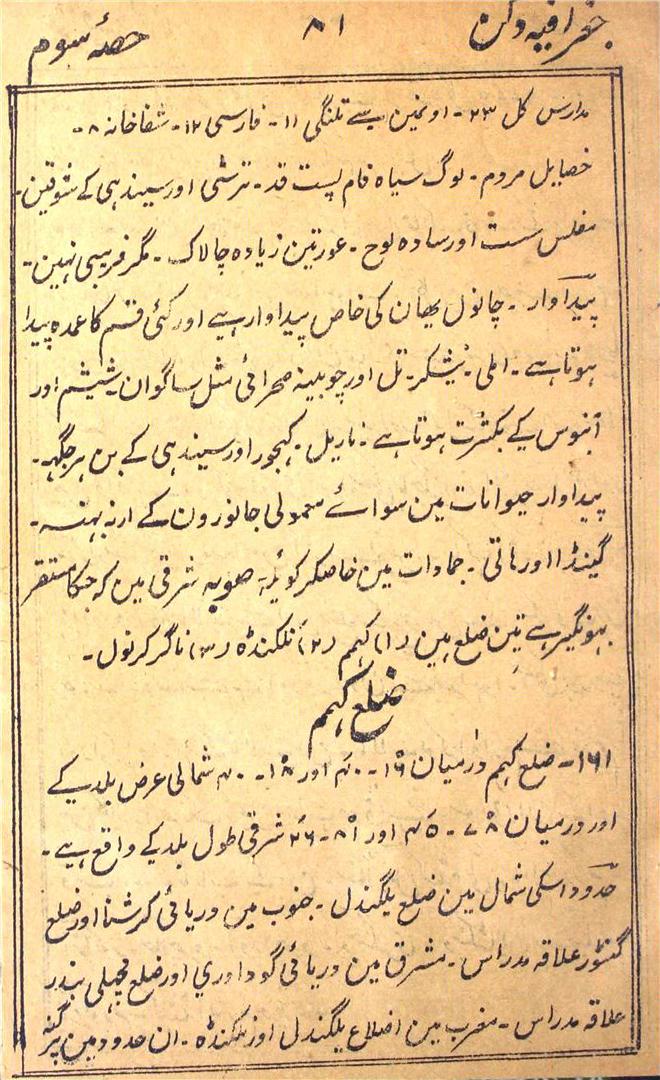 جغرافیہ دکن ۸۱ حصۂ سوم
مدارس کل ۲۳ - اونمین سے تلنگی ۱۱ - فارسی ۱۲ - شفاخانہ ۸ -
خصایل مردم - لوگ سیاہ فام پست قد - ترشی اور سیندہی کے شوقین -
مفلس سست اور سادہ لوح - عورتین زیادہ چالاک - مگر فریبی نہین -
پیداوار - چانول یہان کی خاص پیداوار ہے اور کئی قسم کا عمدہ پیدا
ہوتا ہے - املی - نیشکر - تل اور چوبینہ صحرائی مثل ساگوان - شیشم اور
آبنوس کے بکثرت ہوتا ہے - ناریل - کہجور اور سیندہی کے بن ہر جگہہ -
پیداوار حیوانات مین سوائے معمولی جانورون کے ارنہ بہنسہ -
گینڈا اور ہاتی - جمادات مین خاصکر کوئیلہ صوبہ شرقی مین کہ جسکا مستقر
بہونگیر ہے تین ضلع ہین (۱) کہمم (۲) نلکنڈہ (۳) ناگر کرنول -
ضلع کہمم
۱۶۱ - ضلع کہمم درمیان ۱۶ - ۴۰ اور ۱۸ - ۴۰ شمالی عرض بلد کے
اور درمیان ۷۸ - ۴۵ اور ۸۱ - ۲۶ شرقی طول بلد کے واقع ہے -
حدود اسکی شمال مین ضلع یلگندل - جنوب مین دریائی کرشنا اور ضلع
گنٹور علاقہ مدراس - مشرق مین دریائی گوداوری اور ضلع مچہلی بندر
علاقہ مدراس - مغرب مین اضلاع یلگندل اور نلکنڈہ - ان حدود مین پرگنہ